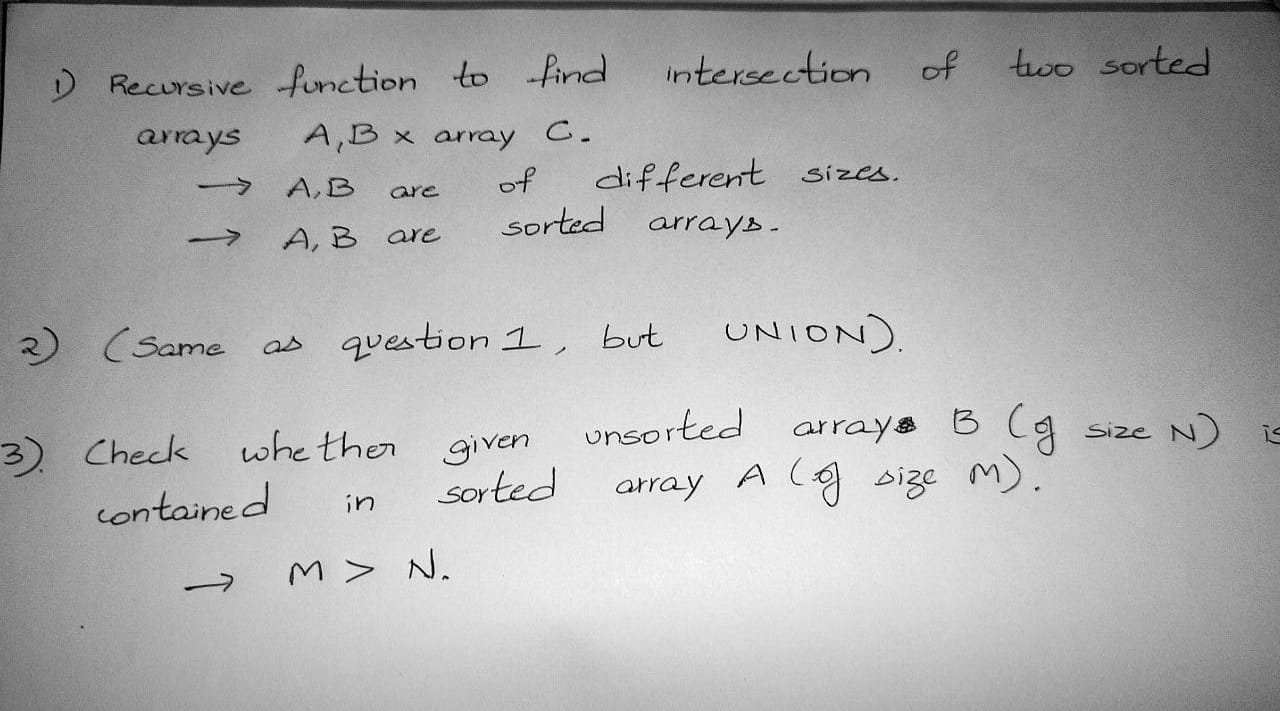 1) Recursive function to find intersection of two sorted
arrays A,B x array C.
→ A,B are of different sizes.
→ A, B are sorted arrays.
2) (Same as question 1, but UNION).
3). Check whether given unsorted array B (of size N) is
contained in sorted array A (of size M).
→ M > N.